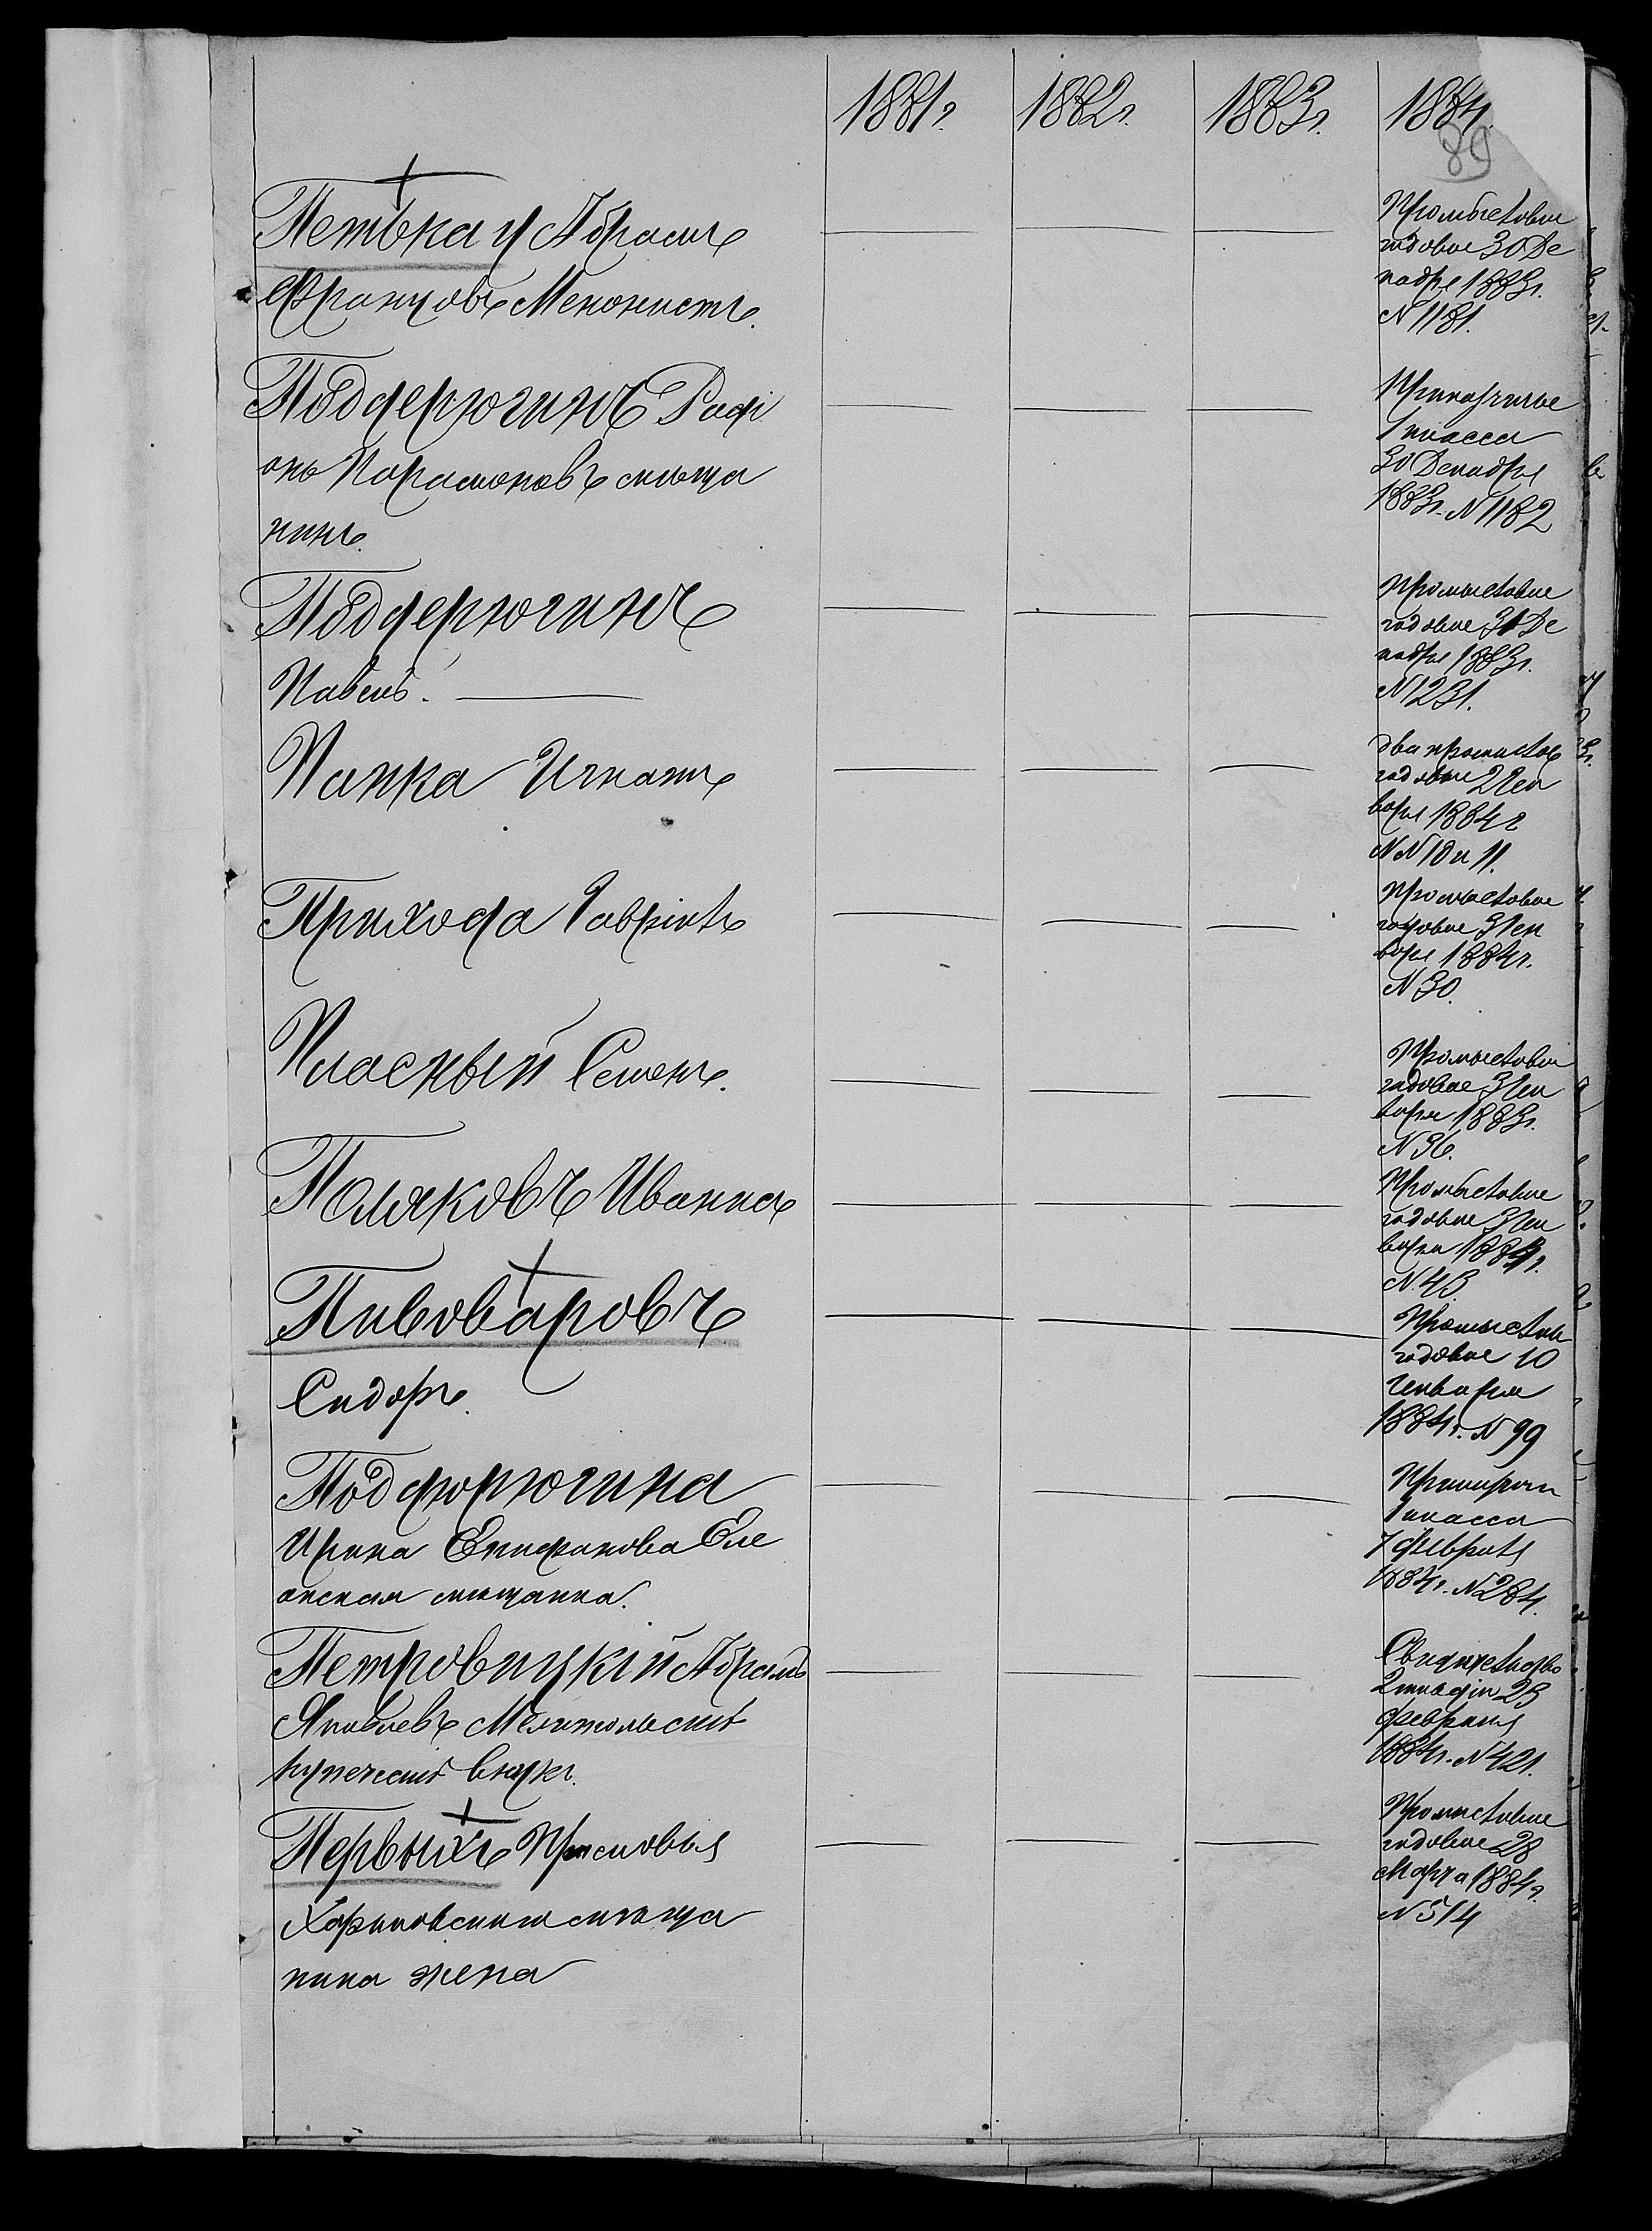 1881г. 1882г. 1883г. 1884г.
89
Петькау Абрамъ
Францовъ Менонистъ.
Промысловое
годовое 30 Де
кабря 1883г.
N 1181.
Поддерюгинъ Раді
онъ Парамоновъ мѣща
нинъ.
Прикащичье
1 класса
30 Декабря
1883г. N 1182
Поддерюгинъ
Павелъ.
Промысловое
годовое 31 Де
кабря 1883г.
N 1231.
Папка Игнатъ
два промыслов
годовые 2 Ген
варя 1884 г
NN 10 и 11.
Прихода Гаврилъ
Промысловое
годовое 3 Ген
варя 1884г.
N 30.
Пласный Семенъ.
Промысловое
годовое 3 Ген
варя 1883г.
N 36.
Поляковъ Иванна
Промысловое
годовое 3 Ген
варя 1884г.
N 43
Пивоваровъ
Сидоръ.
Промыслов
годовое 10
Генваря
1884г. N 99
Поддюрюгина
Ирина Епифанова Еле
анская мѣщанка.
Прикащич
1 класса
7 Февраля
1884г. N 284.
Петровицкій Абрамъ
Яковлевъ Мелитопольскій
купеческій внукъ.
Свидѣтельство
2 гильдіи 23
февраля
1884г. N 421.
Первыхъ Прасковья
Харьковскаго мѣща
нина жена
Промысловое
годовое 28
Марта 1884г.
N 514